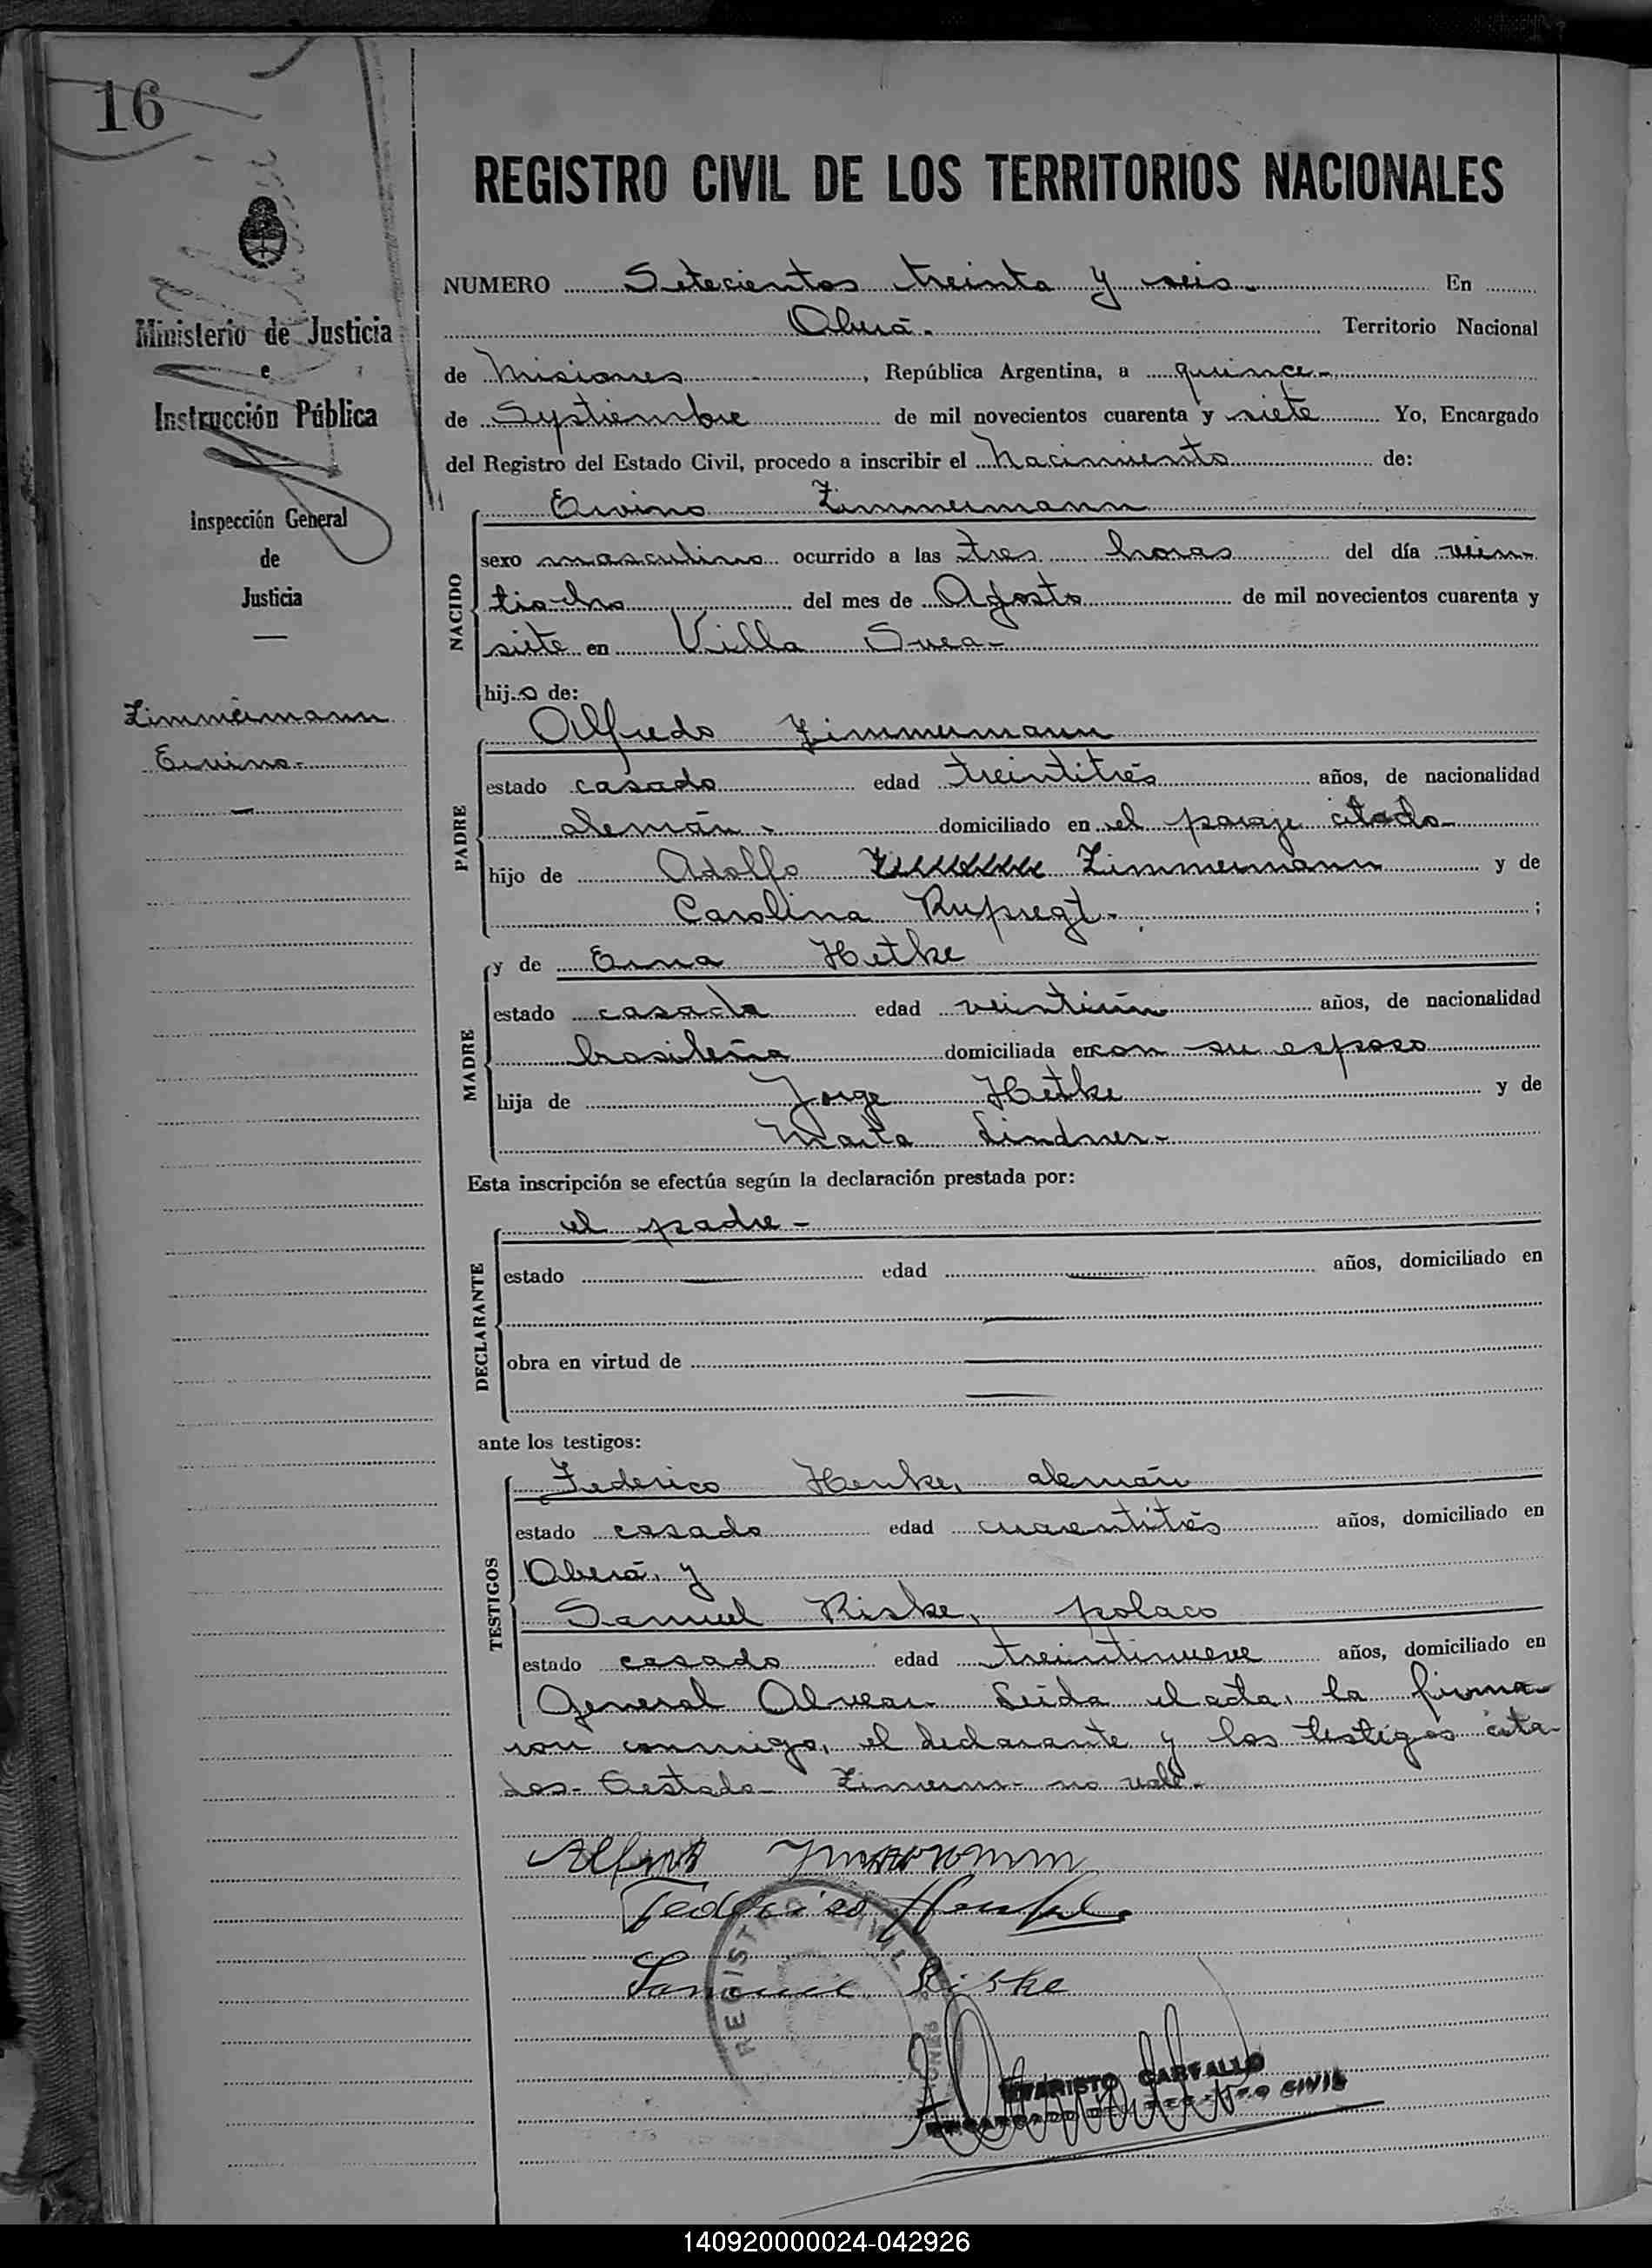 16
REGISTRO CIVIL DE LOS TERRITORIOS NACIONALES
Ministerio de Justicia
e
Instrucción Pública
Inspección General
de
Justicia
Zimmermann
Ervino.
NUMERO Setecientos treinta y seis. En
Oberá. Territorio Nacional
de Misiones, República Argentina, a quince
de Septiembre de mil novecientos cuarenta y siete Yo, Encargado
del Registro del Estado Civil, procedo a inscribir el Nacimiento de:
NACIDO
Ervino Zimmermann
sexo masculino ocurrido a las tres horas del día vein
tiocho del mes de Agosto de mil novecientos cuarenta y
siete en Villa Svea
hijo de:
PADRE
Alfredo Zimmermann
estado casado edad treintitrés años, de nacionalidad
alemán domiciliado en el paraje citado
hijo de Adolfo Zimmermann y de
Carolina Rupregt. ;
MADRE
y de Erna Hetke
estado casada edad veintiún años, de nacionalidad
brasileña domiciliada en con su esposo
hija de Jorge Hetke y de
Marta Lindner.
Esta inscripción se efectúa según la declaración prestada por:
DECLARANTE
el padre -
estado edad años, domiciliado en
obra en virtud de
ante los testigos:
TESTIGOS
Federico Henke, alemán
estado casado edad cuarentitrés años, domiciliado en
Oberá, y
Samuel Riske, polaco
estado casado edad treintinueve años, domiciliado en
General Alvear. Leida el acta, la firma
ron conmigo, el declarante y los testigos cita
dos- Testado Zimerm- no vale.
Federico Henke
Samuel Riske
REGISTRO CIVIL
EVARISTO CARVALLO
ENCARGADO DEL REGISTRO CIVIL
140920000024-042926